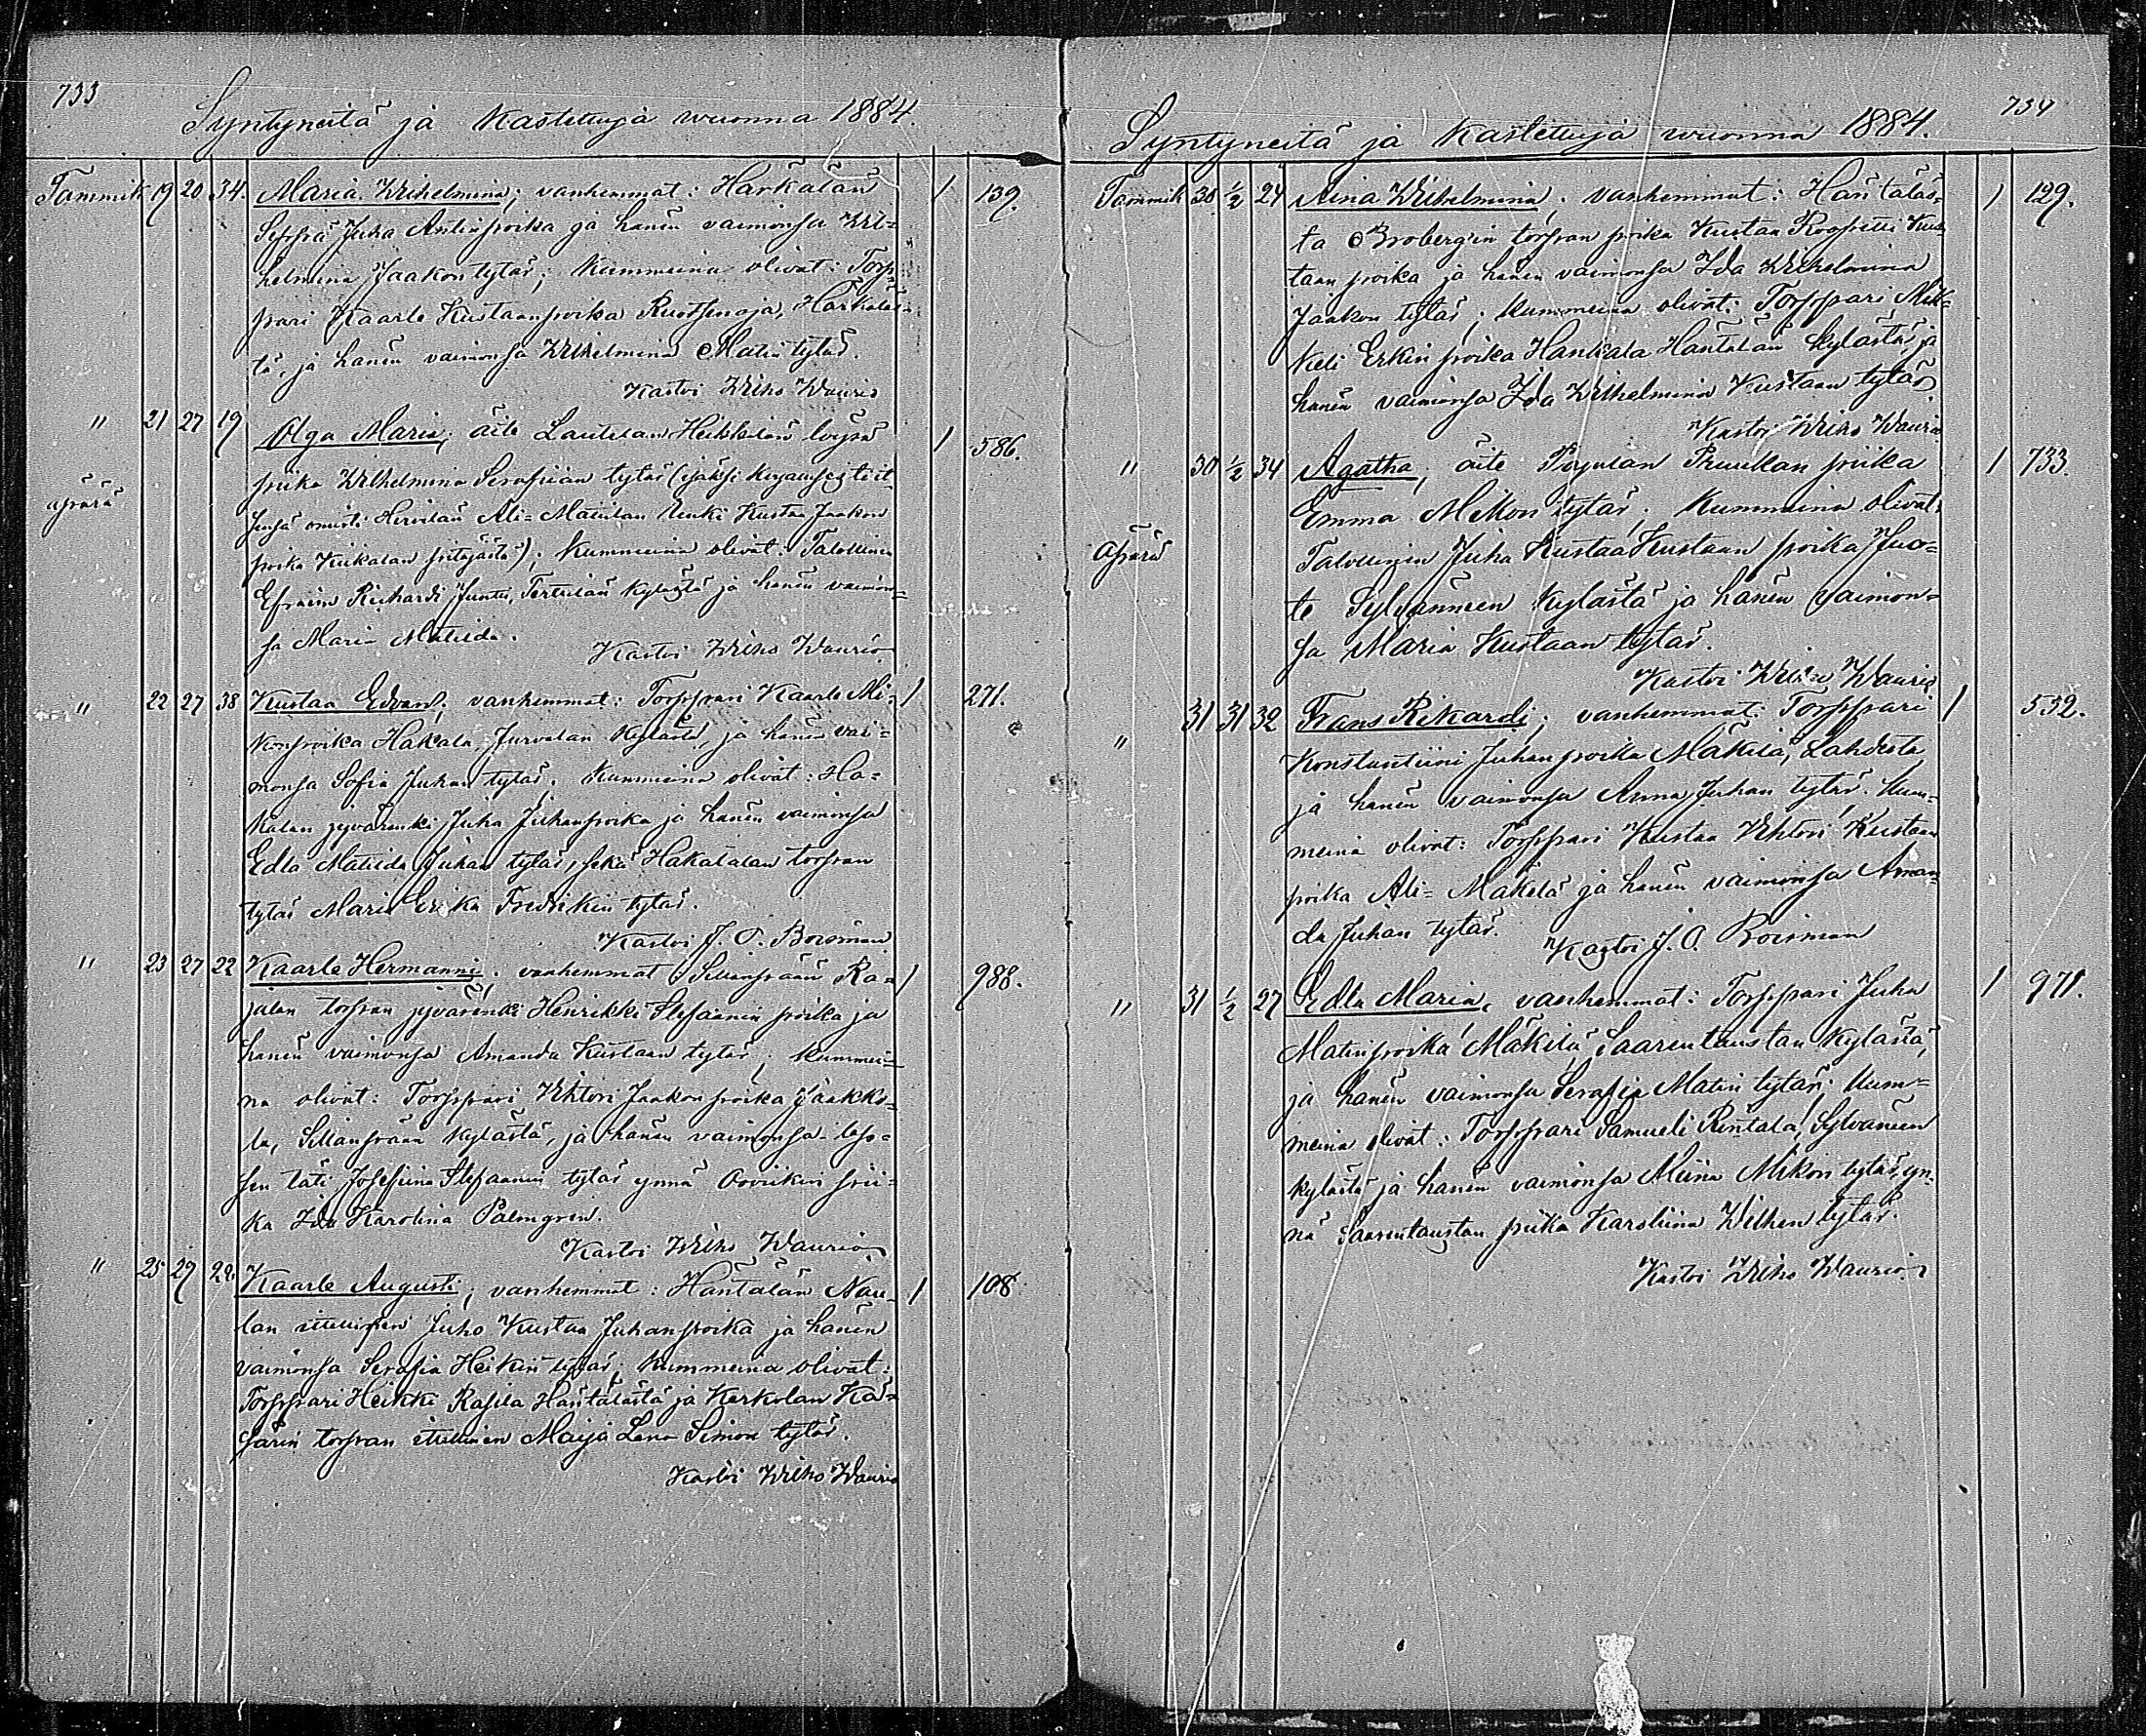 733
Syntyneitä ja Kastettuja wuonna 1884.
Tammik 19 20 34. Maria Wilhelmina; vanhemmat: Härkälän 1 139.
Seppä Juha Antinpoika ja hänen vaimonsa Wil-
helmina Jaakon tytär; Kummeina olivat: Torp-
pari Kaarle Kustaanpoika Ruotsinoja, Härkäläs-
tä, ja hänen vaimonsa Wilhelmina Matin tytär.
Kastoi Wilho Waurio
" 21 27 19 Olga Maria; äiti Lautelan Heikkilän loysä 1 586.
piika Wilhelmina Serafiian tytär
äpärä omisti Hirvelän Ali-Mattilan renki Kustaa Jaakon
poika Kiikalan pitäjästä); Kummeina olivat: Talollinen
Efraim Rickardi Juntti, Terttilän kylästä ja hänen vaimon-
sa Maria Matilda.
Kastoi Wilho Waurio
" 22 27 38 Kustaa Edvard; vanhemmat: Torppari Kaarle Mi- 1 271.
konpoika Hakala, Jurvalan kylästä, ja hänen vai-
monsa Sofia Juhan tytär. Kummeina olivat: Ha-
kalan jyvärenki Juha Juhanpoika ja hänen vaimonsa
Edla Matilda Juhan tytär, sekä Hakalalan torpan
tytär Maria Erika Fredrikin tytär.
Kastoi J. O. Boisman
" 23 27 22 Kaarle Hermanni; vanhemmat: Sillänpään Ra- 1 988.
jalan torpan jyvärenki Henrikki Stefaanin poika ja
hänen vaimonsa Amanda Kustaan tytär; kummei-
na olivat: Torppari Wihtori Jaakon poika Jaakko-
la, Sillänpään kylästä, ja hänen vaimonsa- lap-
sen täti Josefiina Stefaanin tytär ynnä Orvikin pii-
ka Ida Karolina Palmgren.
Kastoi Wilho Waurio
" 25 29 22. Kaarle Augusti; vanhemmat: Häntälän Nau- 1 108
lan itsellinen Juho Kustaa Juhanpoika ja hänen
vaimonsa Serafia Heikin tytär; kummeina olivat:
Torppari Heikki Rasila Häntälästä ja Kerkolan Kä-
särin torpan itsellinen Maija Lena Simon tytär.
Kastoi Wilho Waurio
734
Syntyneitä ja Kastettuja wuonna 1884.
Tammik 30 ½ 24 Aina Wilhelmina; vanhemmat: Häntäläs- 1 129.
tä Broberg'in torpan poika Kustaa Roopertti Kus-
taan poika ja hänen vaimonsa Ida Wilhelmina
Jaakon tytär; Kummeina olivat: Torppari Mik-
keli Erkin poika Hankala Häntälän kylästä, ja
hänen vaimonsa Ida Wilhelmina Kustaan tytär.
Kastoi Wilho Waurio
" 30 ½ 34 Agatha; äiti Pajulan Prunkan piika 1 733.
Emma Mikon tytär; Kummeina olivat:
äpärä Talollinen Juha Kustaa Kustaan poika Juo-
te Sylvänneen kylästä ja hänen vaimon-
sa Maria Kustaan tytär.
Kastoi Wilho Waurio
" 31 31 32 Frans Rikardi; vanhemmat: Torppari 1 552.
Konstantiini Juhan poika Mäkilä, Lahdesta
ja hänen vaimonsa Anna Juhan tytär. Kum-
meina olivat: Torppari Kustaa Wihtori Kustaan
poika Ali-Mäkelä ja hänen vaimonsa Aman-
da Juhan tytär.
Kastoi J. O. Boisman
" 31 ½ 27 Edla Maria; vanhemmat: Torppari Juha 1 971.
Matinpoika Mäkilä, Saarentaustan kylästä,
ja hänen vaimonsa Serafia Matin tytär; kum-
meina olivat: Torppari Samueli Rintala, Sylväneen
kylästä ja hänen vaimonsa Miina Mikon tytär, yn-
nä Saarentaustan piika Karoliina Wilhen tytär.
Kastoi Wilho Waurio